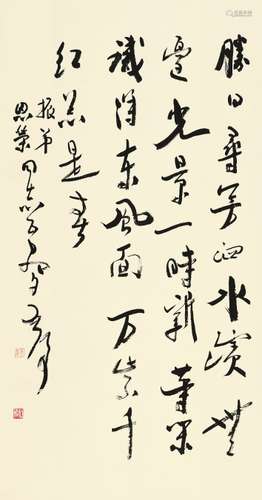 勝日尋芳泗水濱無
邊光景一時新等閒
識得東風面万紫千
紅總是春
振弟
思榮同志